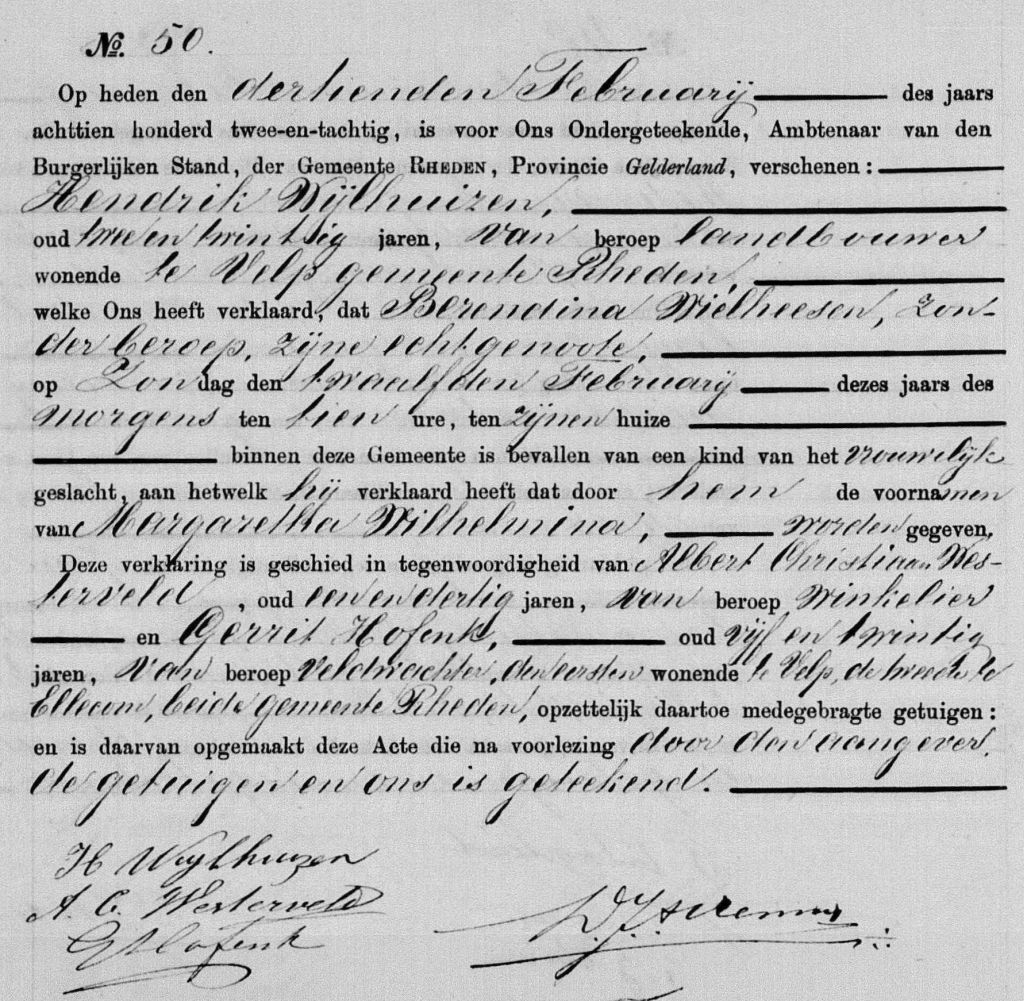 No. 50.
Op heden den dertienden Februarij des jaars
achttien honderd twee-en-tachtig, is voor Ons Ondergeteekende, Ambtenaar van den
Burgerlijken Stand, der Gemeente RHEDEN, Provincie Gelderland, verschenen:
Hendrik Wijlhuizen,
oud twee en twintig jaren, van beroep landbouwer
wonende te Velp gemeente Rheden,
welke Ons heeft verklaard, dat Berendina Wielheesen, zon-
der beroep, zijne echtgenoote,
op Zondag den twaalfden Februarij dezes jaars des
morgens ten tien ure, ten zijnen huize
binnen deze Gemeente is bevallen van een kind van het vrouwelijk
geslacht, aan hetwelk hij verklaard heeft dat door hem de voornamen
van Margaretha Wilhelmina, worden gegeven.
Deze verklaring is geschied in tegenwoordigheid van Albert Christiaan Wes-
terveld, oud een en dertig jaren, van beroep Winkelier
en Gerrit Hofenk, oud vijf en twintig
jaren, van beroep Veldwachter, den eersten wonende te Velp, de tweede te
Ellecom, beide gemeente Rheden, opzettelijk daartoe medegebragte getuigen:
en is daarvan opgemaakt deze Acte die na voorlezing door den aangever,
de getuigen en ons is geteekend.
H Wijlhuizen
A. C. Westerveld
G Hofenk